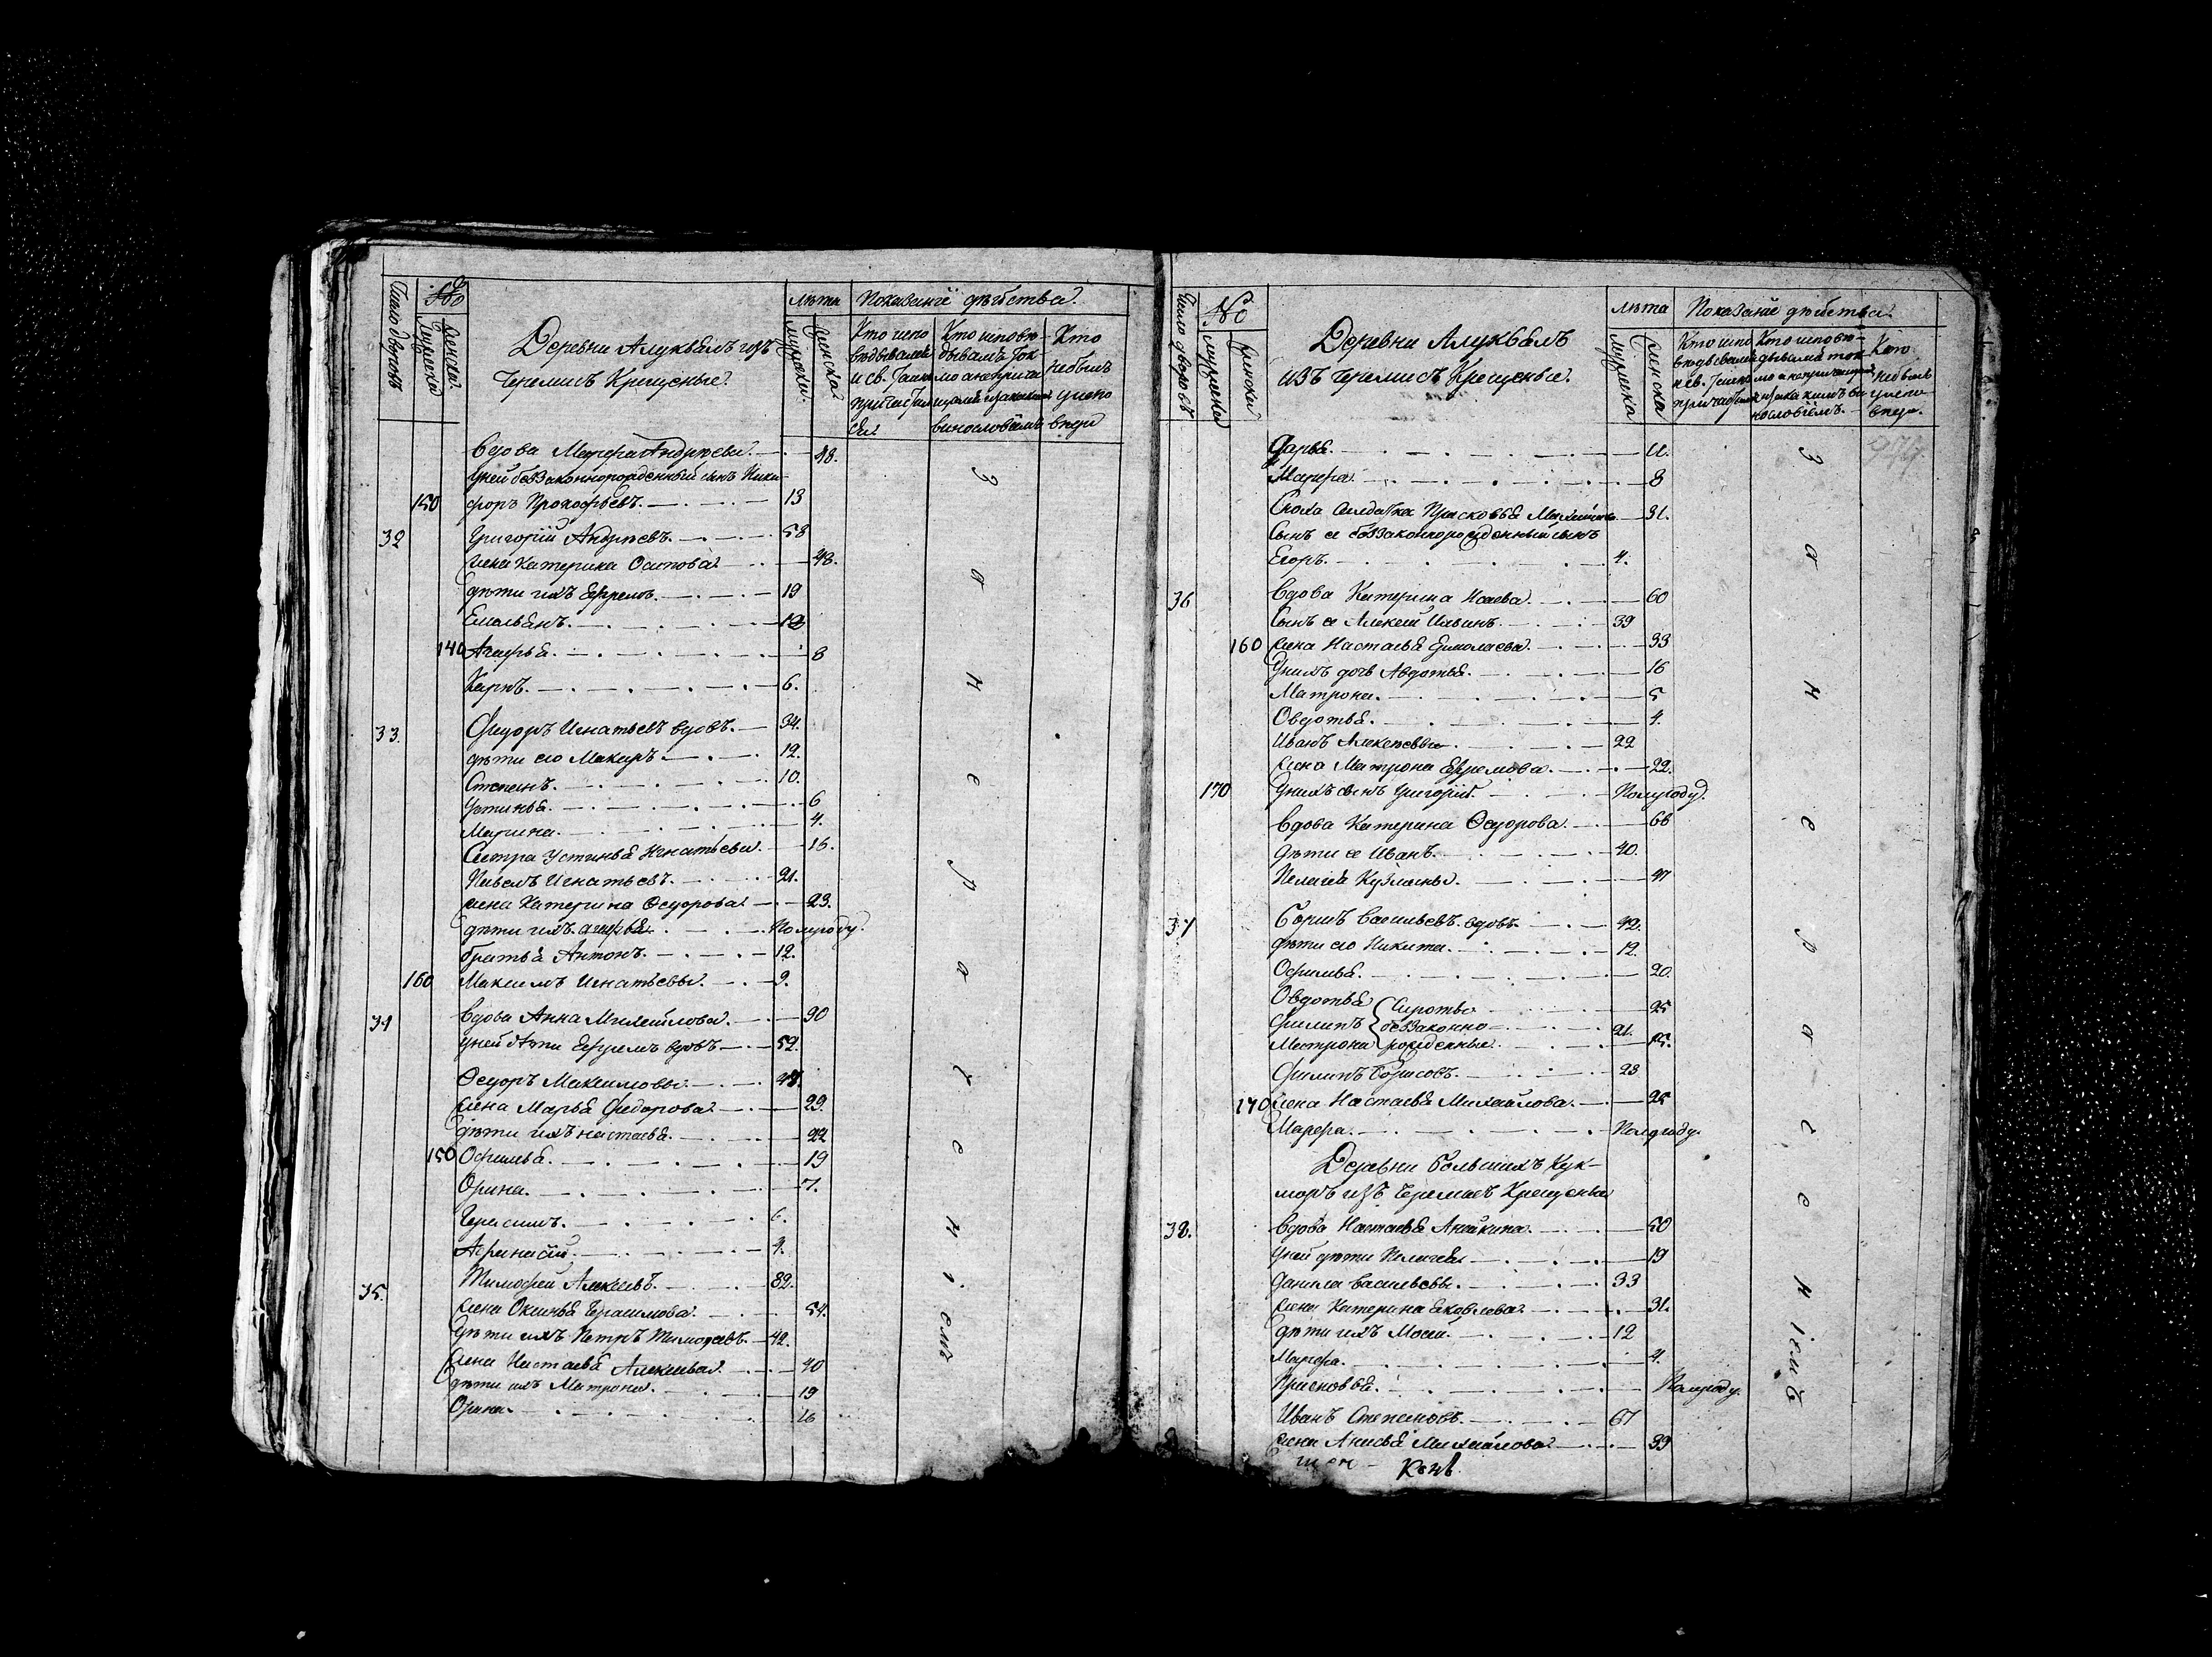 Число дворовъ
№
Мужеска
Женска
Деревни Алуквалъ изъ
Черемисъ Крещеные.
Лѣта
Мужска.
Женска
Показанiе дѣйства.
Кто испо
вѣдывались
и св. Таинъ
причастил
ся.
Кто исповѣ-
дывалъ ток
мо а непричa
щался и за какимъ
винословiемъ
Кто
небылъ
у испо
вѣди
Вдова Марфа Андрѣева. 48.
Уней беззаконнорожденный сынъ Ники-
150 форъ Прокофьевъ. 13
32 Григорiй Андрѣевъ. 58
Жена Катерина Осипова 48.
дѣти ихъ Ефремъ. 19
Емельянъ. 12
140 Агафья. 8
Карпъ. 6.
33. Федоръ Игнатьевъ вдовъ. 34.
дѣти его Макаръ. 12.
Степанъ. 10.
Устинья. 6
Марина. 4.
Сестра Устинья Игнатьева. 16.
Павелъ Игнатьевъ. 21.
Жена Катерина Ѳедорова. 23.
дѣти ихъ Агафья. Полугоду.
братья Антонъ. 12.
160 Максимъ Игнатьевы. 9.
34 Вдова Анна Михайлова. 90
уней дѣти Ефремъ вдовъ 52.
Ѳедоръ Максимовы. 48.
Жена Марья Федорова. 29.
дѣти ихъ Настасья. 22
150 Офимья. 19
Орина. 7.
Герасимъ. 6.
Афанасiй. 4.
35. Тимофей Алексеевъ. 82.
Жена Оксинья Герасимова. 54.
Дѣти ихъ Петръ Тимофеевъ. 42.
Жена Настасья Алексеева. 40
дѣти ихъ Матрона. 19
Орина. 16
З а н е р а
Число дворовъ
№
Мужеска
Женска
Деревни Алуквалъ
изъ Черемисъ Крещеные.
Лѣта
Мужеска
Женска
Показанiе дѣйства.
Кто испо
вѣдывались
и св. Таинъ
Кто исповѣ-
дывался ток
мо а непричащался
и за какимъ ви
нословiемъ.
Кто
небылъ
у испо
вѣди.
Дарья. 11.
Марфа. 8
Сноха Солдатка Прасковья Михайлова 31.
Сынъ ее беззаконнорожденный сынъ
Егоръ. 4.
36 Вдова Катерина Исаева. 60
Сынъ ее Алексей Ильинъ. 39
160 Жена Настасья Ермолаева. 33
Унихъ дочь Авдотья. 16
Матрона. 5
Овдотья. 4.
Иванъ Алексѣевы. 22
Жена Матрона Ефремова. 22.
170 Унихъ сынъ Григорiй. Полугоду.
Вдова Катерина Ѳедорова. 66
Дѣти ее Иванъ. 40.
Пелагея Кузмины. 47
37 Борисъ Васильевъ вдовъ. 42.
дѣти его Никита. 12.
Офимья. 20.
Овдотья Сироты 25
Филипъ беззаконно 21.
Матрона рожденные. 15.
Филипъ Борисовъ. 23
170 Жена Настасья Михайлова. 25
Марфа. Полугоду.
Деревни Большихъ Кук-
моръ изъ Черемисъ Крещеные
38. Вдова Настасья Аникина. 50
Уней дѣти Пелагея 19
Данила Васильевы. 33
Жена Катерина Яковлева. 31.
дѣти ихъ Мосей. 12
Марфа. 4.
Прасковья. Полугоду.
Иванъ Степановъ. 67
Жена Анисья Михайлова. 39